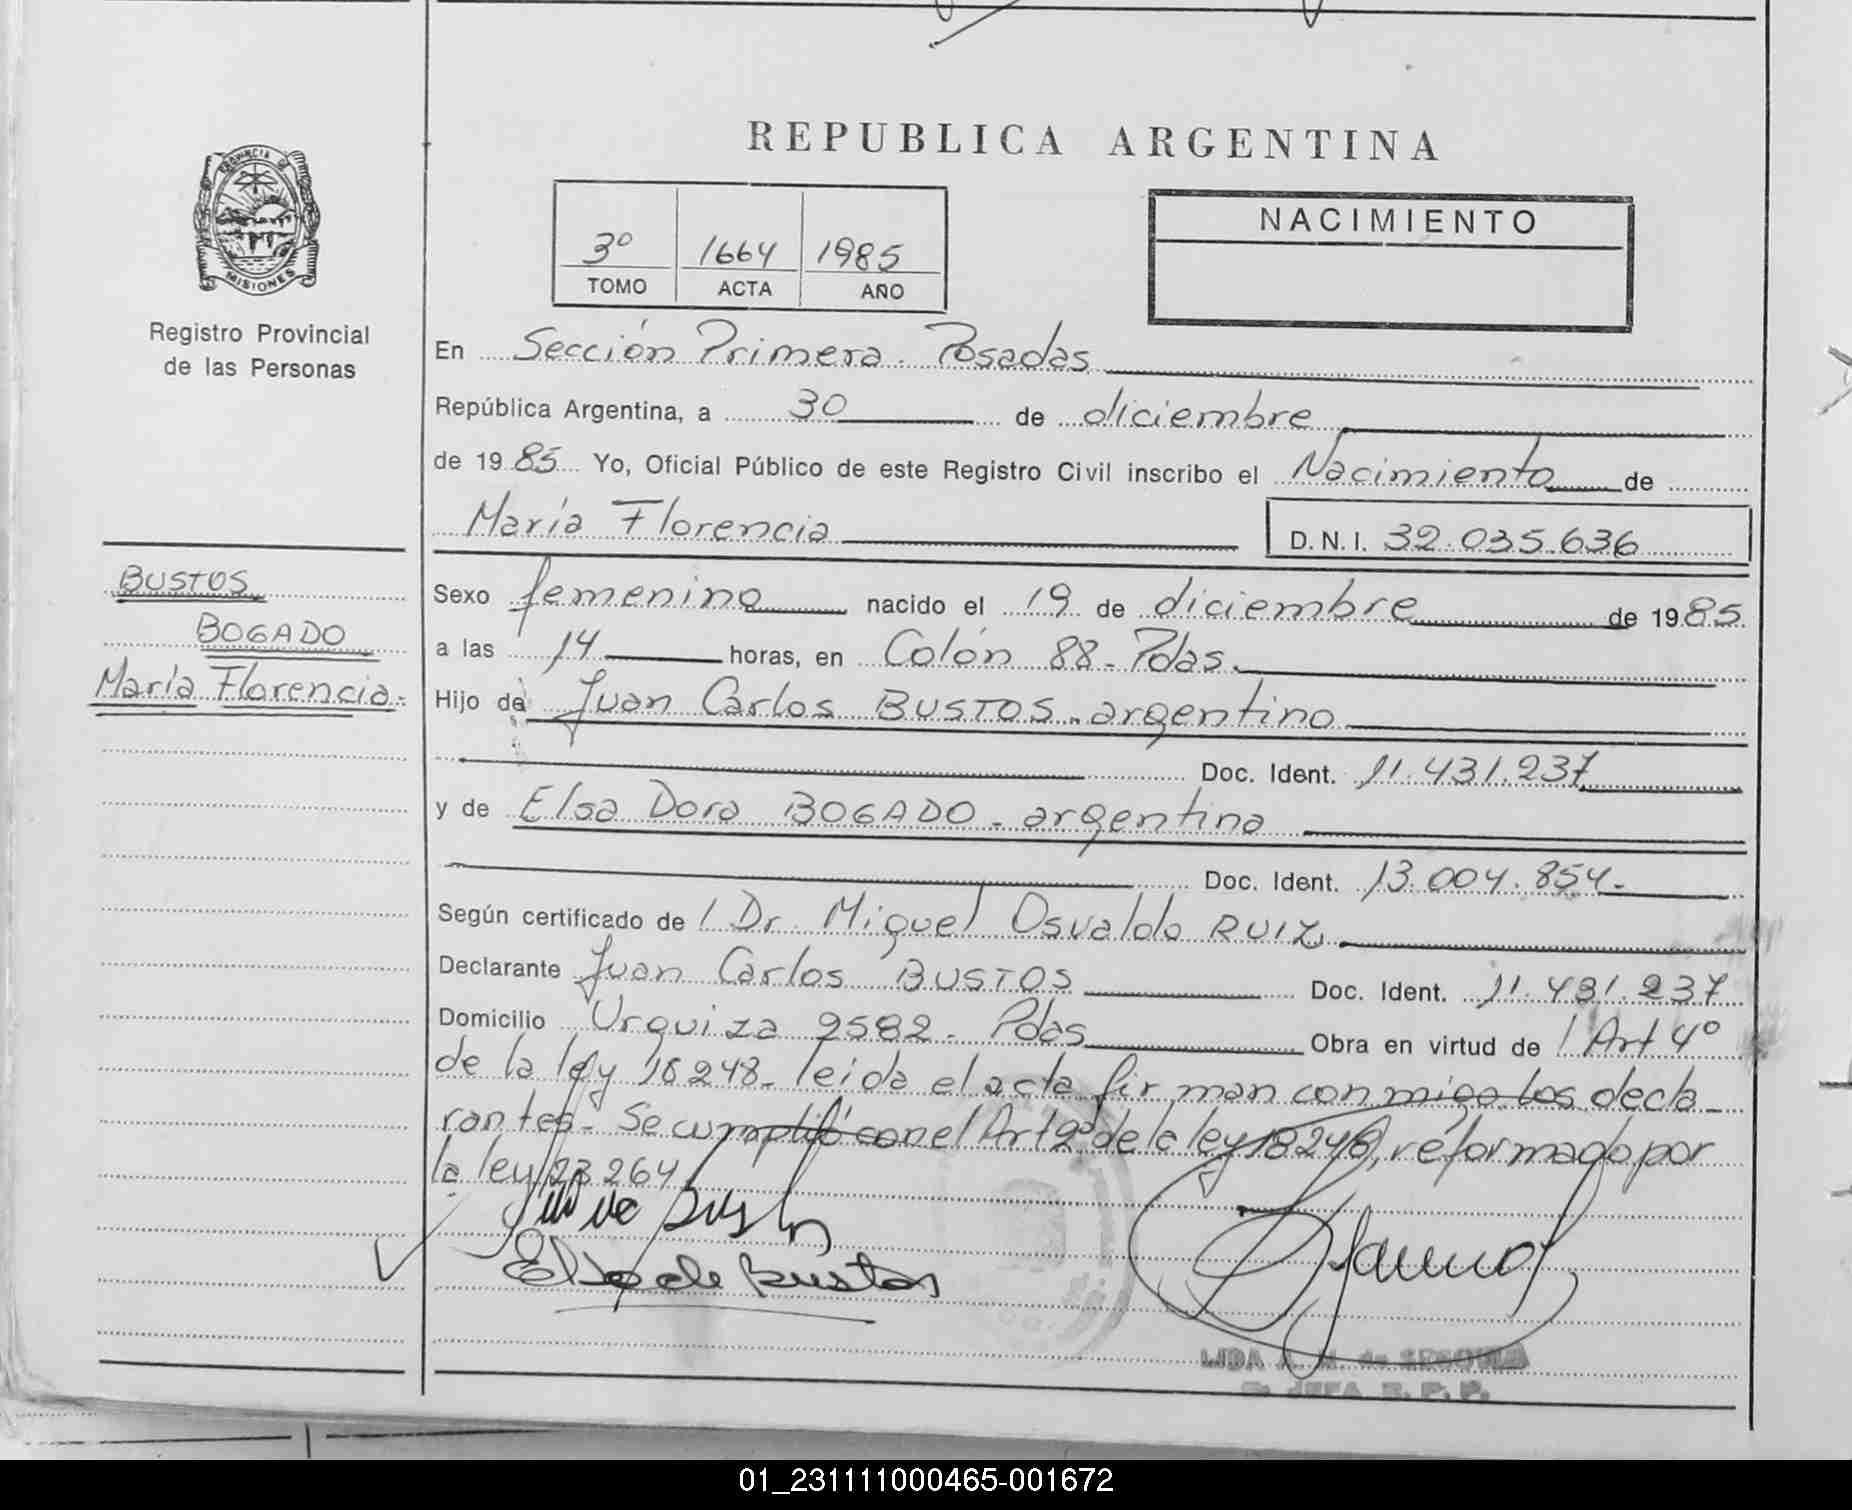 REPUBLICA ARGENTINA
PROVINCIA DE
MISIONES
Registro Provincial
de las Personas
3º 1664 1985
TOMO ACTA AÑO
NACIMIENTO
En Sección Primera. Posadas
República Argentina, a 30 de diciembre
de 1985 Yo, Oficial Público de este Registro Civil inscribo el Nacimiento de
María Florencia D.N.I. 32.035.636
BUSTOS
BOGADO
María Florencia.
Sexo femenino nacido el 19 de diciembre de 1985
a las 14 horas, en Colón 88 - Pdas.
Hijo de Juan Carlos BUSTOS. argentino
Doc. Ident. 11.431.237
y de Elsa Dora BOGADO - argentina
Doc. Ident. 13.004.854.
Según certificado de / Dr. Miguel Osvaldo RUIZ
Declarante Juan Carlos BUSTOS Doc. Ident. 11.431.237
Domicilio Urquiza 2582 - Pdas Obra en virtud de / Art 4º
de la ley 18248. leida el acta firman conmigo los decla_
rantes. Se cumplió con el Art 2º de la ley 18248, reformado por
la ley 23264
Elsa de Bustos
LIDA A. M. de SEGOVIA
JEFA R. P. P.
01_231111000465-001672